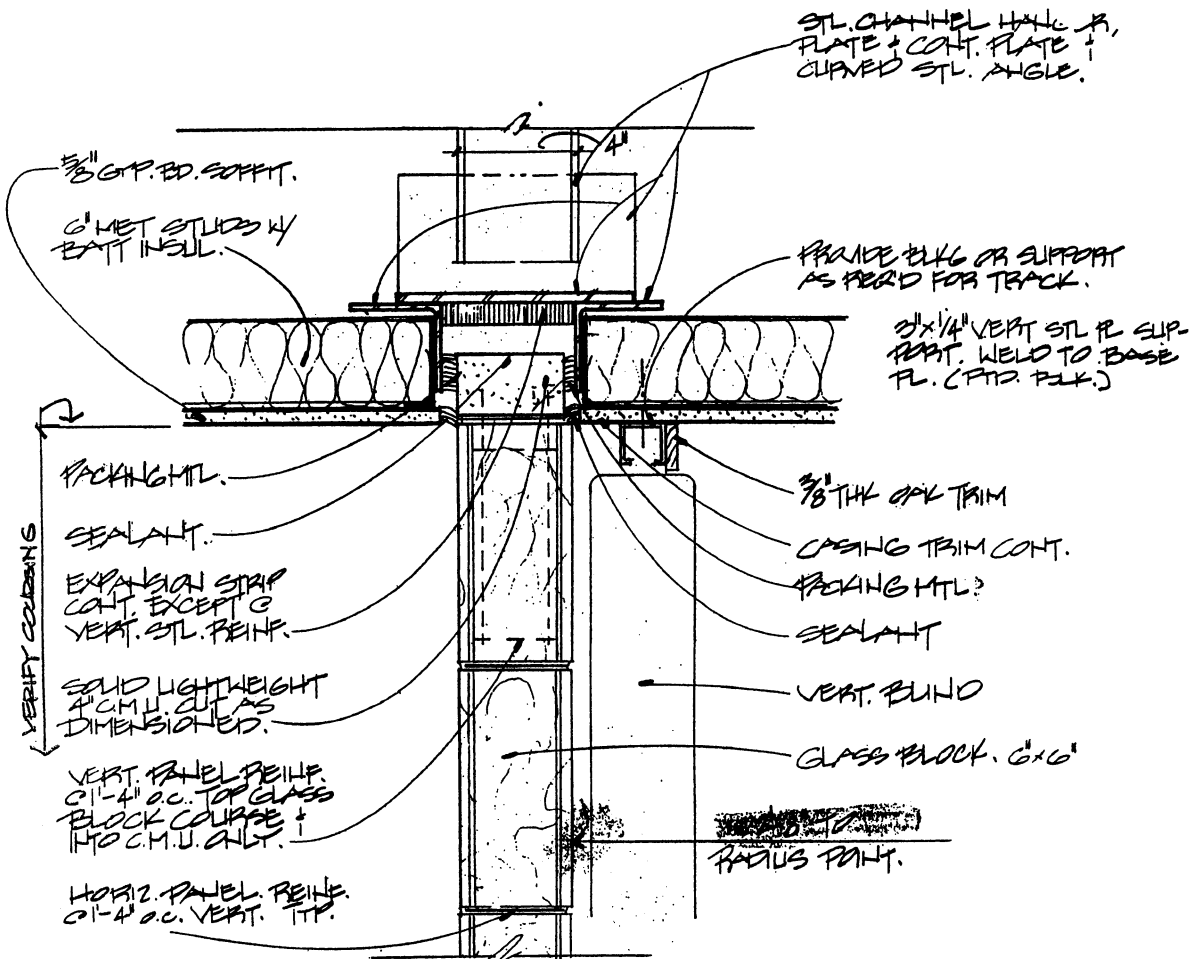 STL. CHANNEL
PLATE & CONT. PLATE &
CURVED STL. ANGLE.
4"
5/8" GYP. BD. SOFFIT.
6" MET STUDS W/
BATT INSUL.
PROVIDE BLKG OR SUPPORT
AS REQ'D FOR TRACK.
3"x1/4" VERT STL PL SUP-
PORT. WELD TO BASE
PL. (PTD. BLK.)
VERIFY COURSING
PACKING MTL.
SEALANT.
EXPANSION STRIP
CONT. EXCEPT @
VERT. STL. REINF.
SOLID LIGHTWEIGHT
4" C.M.U. CUT AS
DIMENSIONED.
VERT. PANEL REINF.
@ 1'-4" O.C. TOP GLASS
BLOCK COURSE &
INTO C.M.U. ONLY.
HORIZ. PANEL REINF.
@ 1'-4" O.C. VERT. TYP.
3/8" THK OAK TRIM
CASING TRIM CONT.
PACKING MTL
SEALANT
VERT. BLIND
GLASS BLOCK. 6"x6"
TO
RADIUS POINT.